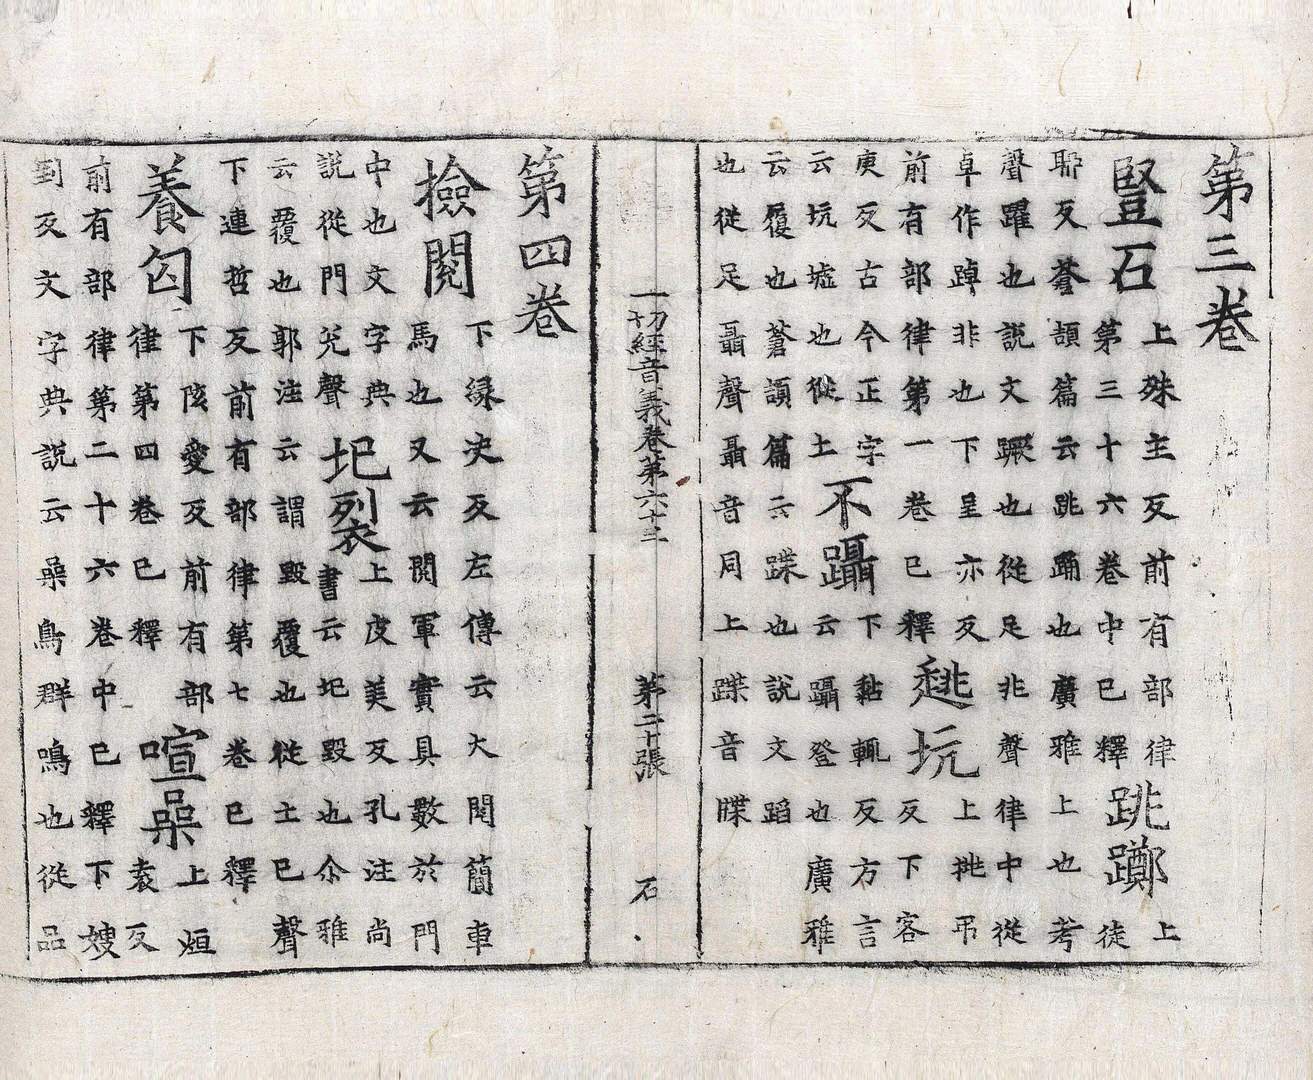 第三卷
竪石上殊主反前有部律第三十六卷中已釋跳躑上徒
耶反蒼頡篇云跳踊也廣雅上也考
聲躍也説文蹶也從足兆聲律中從
卓作踔非也下呈亦反前有部律第一卷已釋趒坑上挑弔反下客
庚反古今正字云坑墟也從土不躡下黏輒反方言云躡登也廣雅
云履也蒼頡篇云蹀也説文蹈
也從足聶聲聶音同上蹀音牒
一切經音義卷第六十三 第二十張 石
第四卷
撿閲下緑決反左傳云大閲簡車馬也又云閲軍實具數於門
中也文字典説從門兌聲圮裂上皮美反孔注尚書云圮毀也尒雅
云覆也郭注云謂毀覆也從土已聲
下連哲反前有部律第七卷已釋
養匃下陔愛反前有部律第四卷已釋喧喿上烜袁反
前有部律第二十六卷中已釋下嫂
到反文字典説云喿鳥群鳴也從品